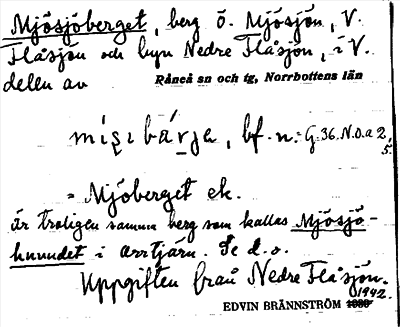 Mjösjöberget, berg ö. Mjösjön, V.
Flåsjön och byn Nedre Flåsjön, i V.
delen av Råneå sn och tg, Norrbottens län
bf. n. G. 36. N. o. a 2,
5.
= Mjöberget ek.
är troligen samma berg som kallas Mjösjö-
huvudet i Arrtjärn. Se d. o.
Uppgiften från Nedre Flåsjön.
1942.
EDVIN BRÄNNSTRÖM